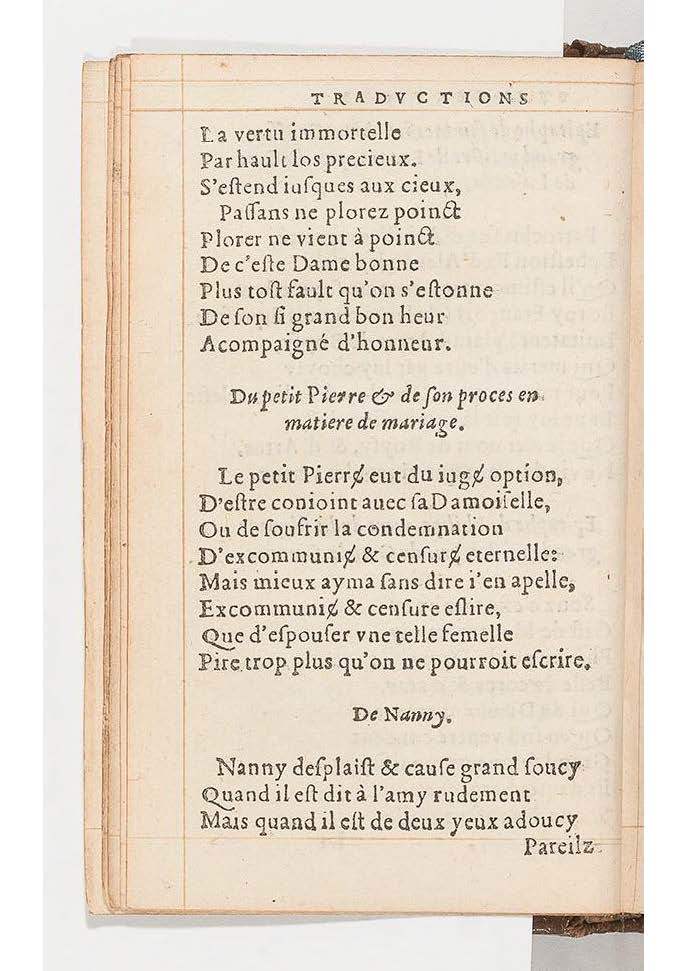 TRADVCTIONS
La vertu immortelle
Par hault los precieux.
S'eſtend iuſques aux cieux,
Paſſans ne plorez poinct
Plorer ne vient à poinct
De c'eſte Dame bonne
Plus toſt fault qu'on s'eſtonne
De ſon ſi grand bon heur
Acompaigné d'honneur.
Du petit Pierre & de ſon proces en
matiere de mariage.
Le petit Pierrɇ eut du iugɇ option,
D'eſtre conioint auec ſa Damoiſelle,
Ou de ſoufrir la condemnation
D'excommuniɇ & cenſurɇ eternelle:
Mais mieux ayma ſans dire i'en apelle,
Excommuniɇ & cenſure eſlire,
Que d'eſpouſer vne telle femelle
Pire trop plus qu'on ne pourroit eſcrire.
De Nanny.
Nanny deſplaiſt & cauſe grand ſoucy
Quand il eſt dit à l'amy rudement
Mais quand il eſt de deux yeux adoucy
Pareilz